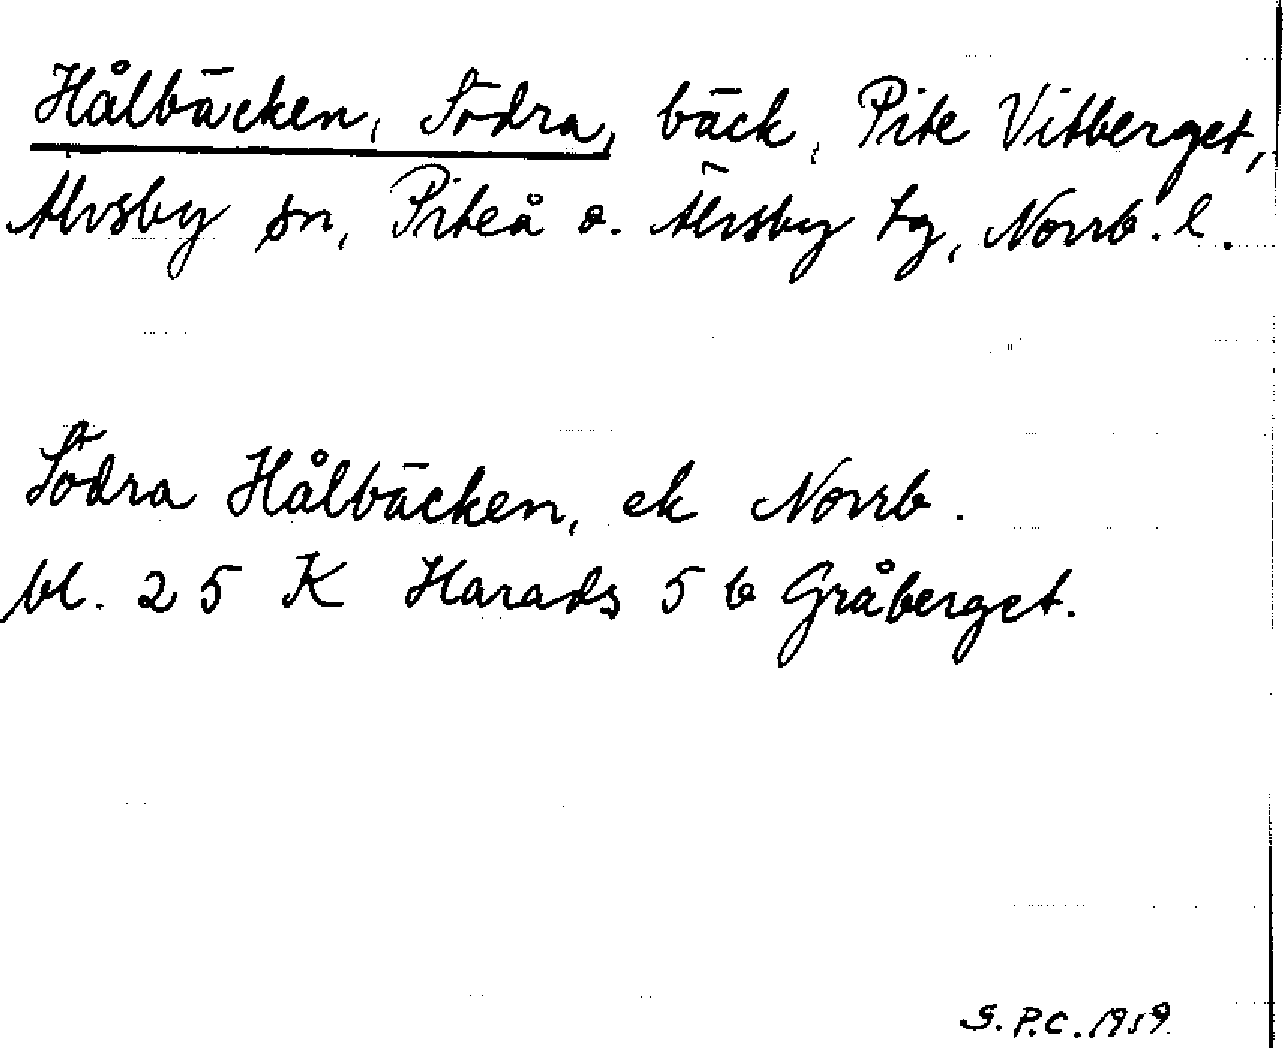 Hålbäcken, Södra, bäck, Pite Vitberget,
Älvsby sn, Piteå o. Älvsby tg, Norrb. l.
Södra Hålbäcken, ek Norrb.
bl. 25 K Harads 5 b Gråberget.
S.P.C. 1959